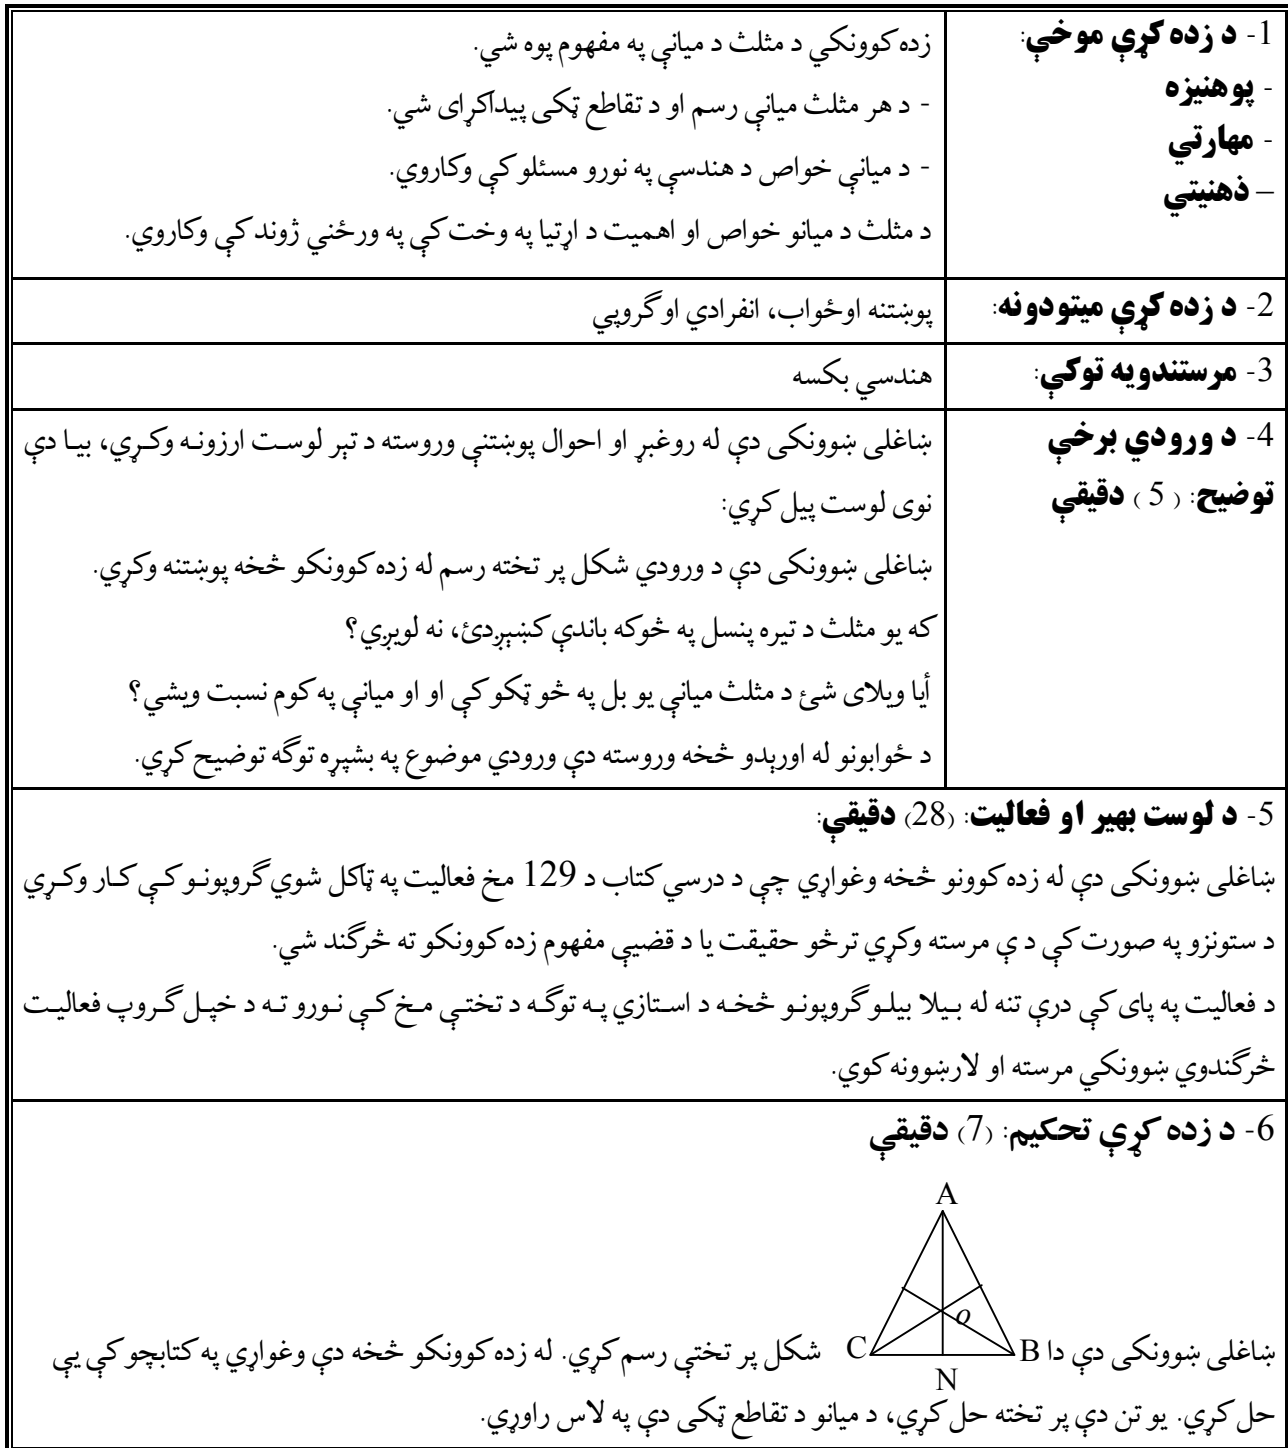 1- د زده کړې موخې:
- پوهنيزه
- مهارتي
– ذهنيتي
زده کوونکي د مثلث د ميانې په مفهوم پوه شي.
- د هر مثلث ميانې رسم او د تقاطع ټکی پيداکړای شي.
- د ميانې خواص د هندسې په نورو مسئلو کې وکاروي.
د مثلث د ميانو خواص او اهميت د اړتيا په وخت کې په ورځني ژوند کې وکاروي.
2- د زده کړې ميتودونه:
پوښتنه اوځواب، انفرادي اوگروپي
3- مرستندويه توکي:
هندسي بکسه
4- د ورودي برخې
توضيح: ( 5 ) دقيقې
ښاغلی ښوونکی دې له روغبړ او احوال پوښتنې وروسته د تېر لوست ارزونه وکړي، بيا دې
نوی لوست پيل کړي:
ښاغلی ښوونکی دې د ورودي شکل پر تخته رسم له زده کوونکو څخه پوښتنه وکړي.
که يو مثلث د تيره پنسل په څوکه باندې کښېږدئ، نه لويږي؟
أيا ويلای شئ د مثلث ميانې يو بل په څو ټکو کې او او ميانې په کوم نسبت ويشي؟
د ځوابونو له اورېدو څخه وروسته دې ورودي موضوع په بشپړه توگه توضيح کړي.
5- د لوست بهير او فعاليت: (28) دقيقې:
ښاغلی ښوونکی دې له زده کوونو څخه وغواړي چې د درسي کتاب د 129 مخ فعاليت په ټاکل شوي گروپونو کې کار وکړي
د ستونزو په صورت کې د ې مرسته وکړي ترڅو حقيقت يا د قضيې مفهوم زده کوونکو ته څرگند شي.
د فعاليت په پای کې درې تنه له بيلا بيلو گروپونو څخه د استازي په توگه د تختې مخ کې نورو ته د خپل گروپ فعاليت
څرگندوي ښوونکي مرسته او لارښوونه کوي.
6- د زده کړې تحکيم: (7) دقيقې
A
o
ښاغلی ښوونکی دې دا B C شکل پر تختې رسم کړي. له زده کوونکو څخه دې وغواړي په کتابچو کې يې
N
حل کړي. يو تن دې پر تخته حل کړي، د ميانو د تقاطع ټکی دې په لاس راوړي.